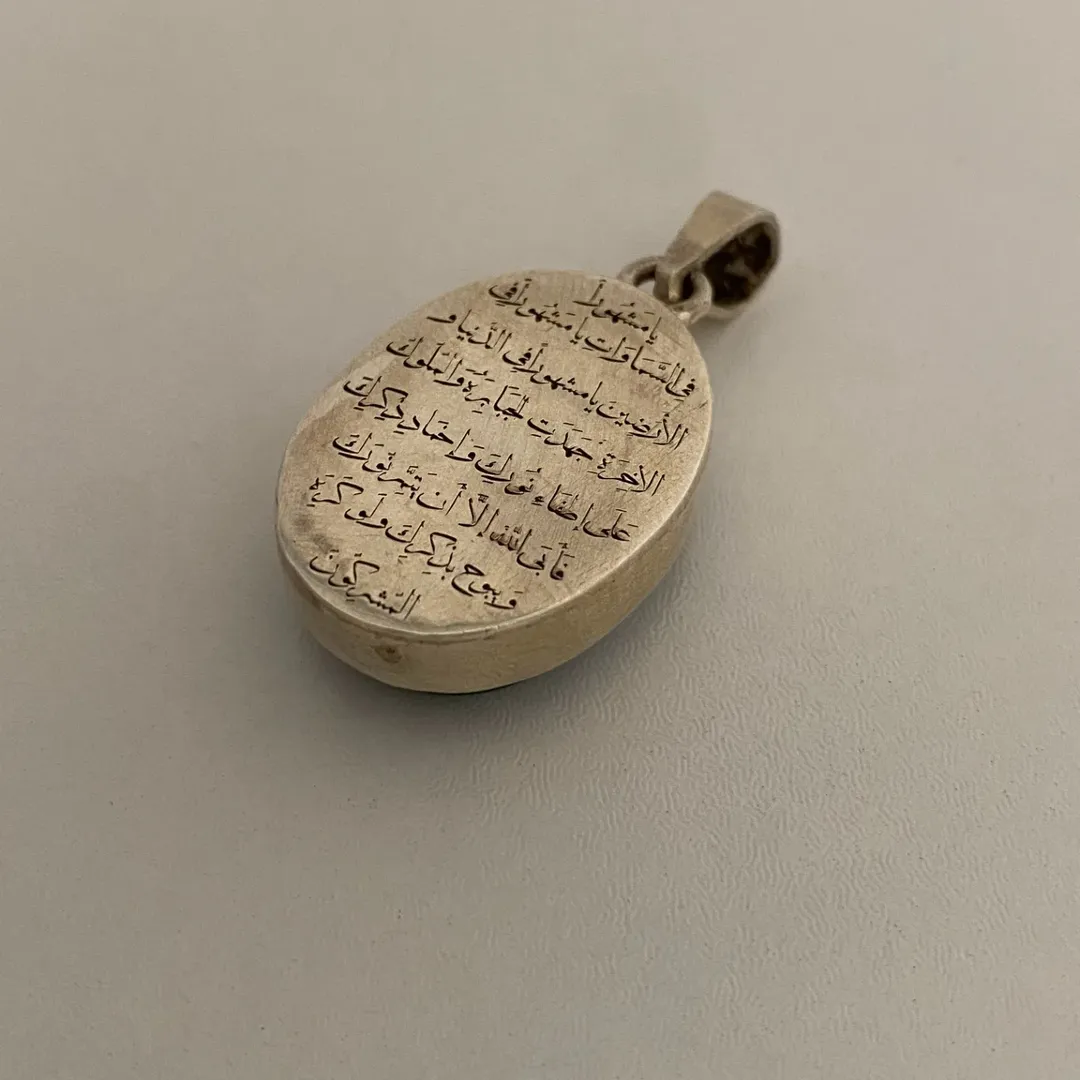 يا مَشهُوراً
في السَّمَاوَاتِ يا مَشهُوراً في
الأرَضينَ يا مشهوراً في الدَّنيا و
الآخِرَةِ جَهَدَتِ الجَبَابِرَةُ وَالمُلُوكُ
عَلَى إطفَاءِ نُورِكَ وَإخمَادِ ذِكرِكَ
فَأَبَى اللهُ إلَّا أَن يُتِمَّ نُورَكَ
وَيبوحَ بذِكرِكَ وَلَو كَرِهَ
المُشرِكُونَ